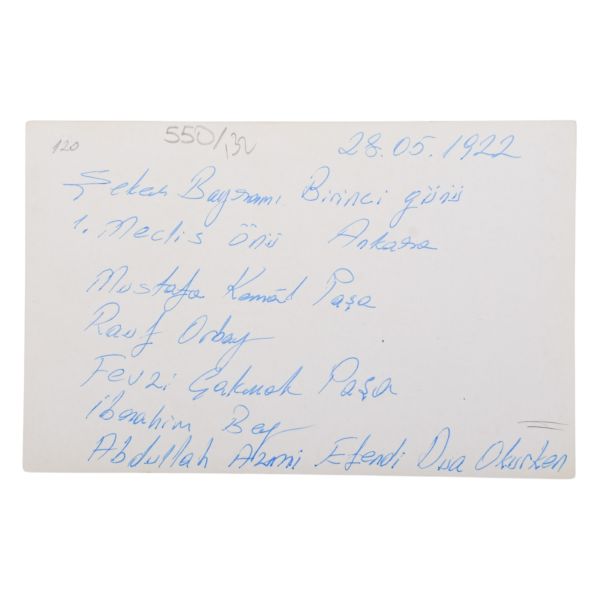 120
550/
28.05.1922
Şeker Bayramı Birinci günü
1. Meclis Önü Ankara
Mustafa Kemâl Paşa
Rauf Orbay
Fevzi Çakmak Paşa
İbrahim Bey
Abdullah Azmi Efendi Dua Okurken